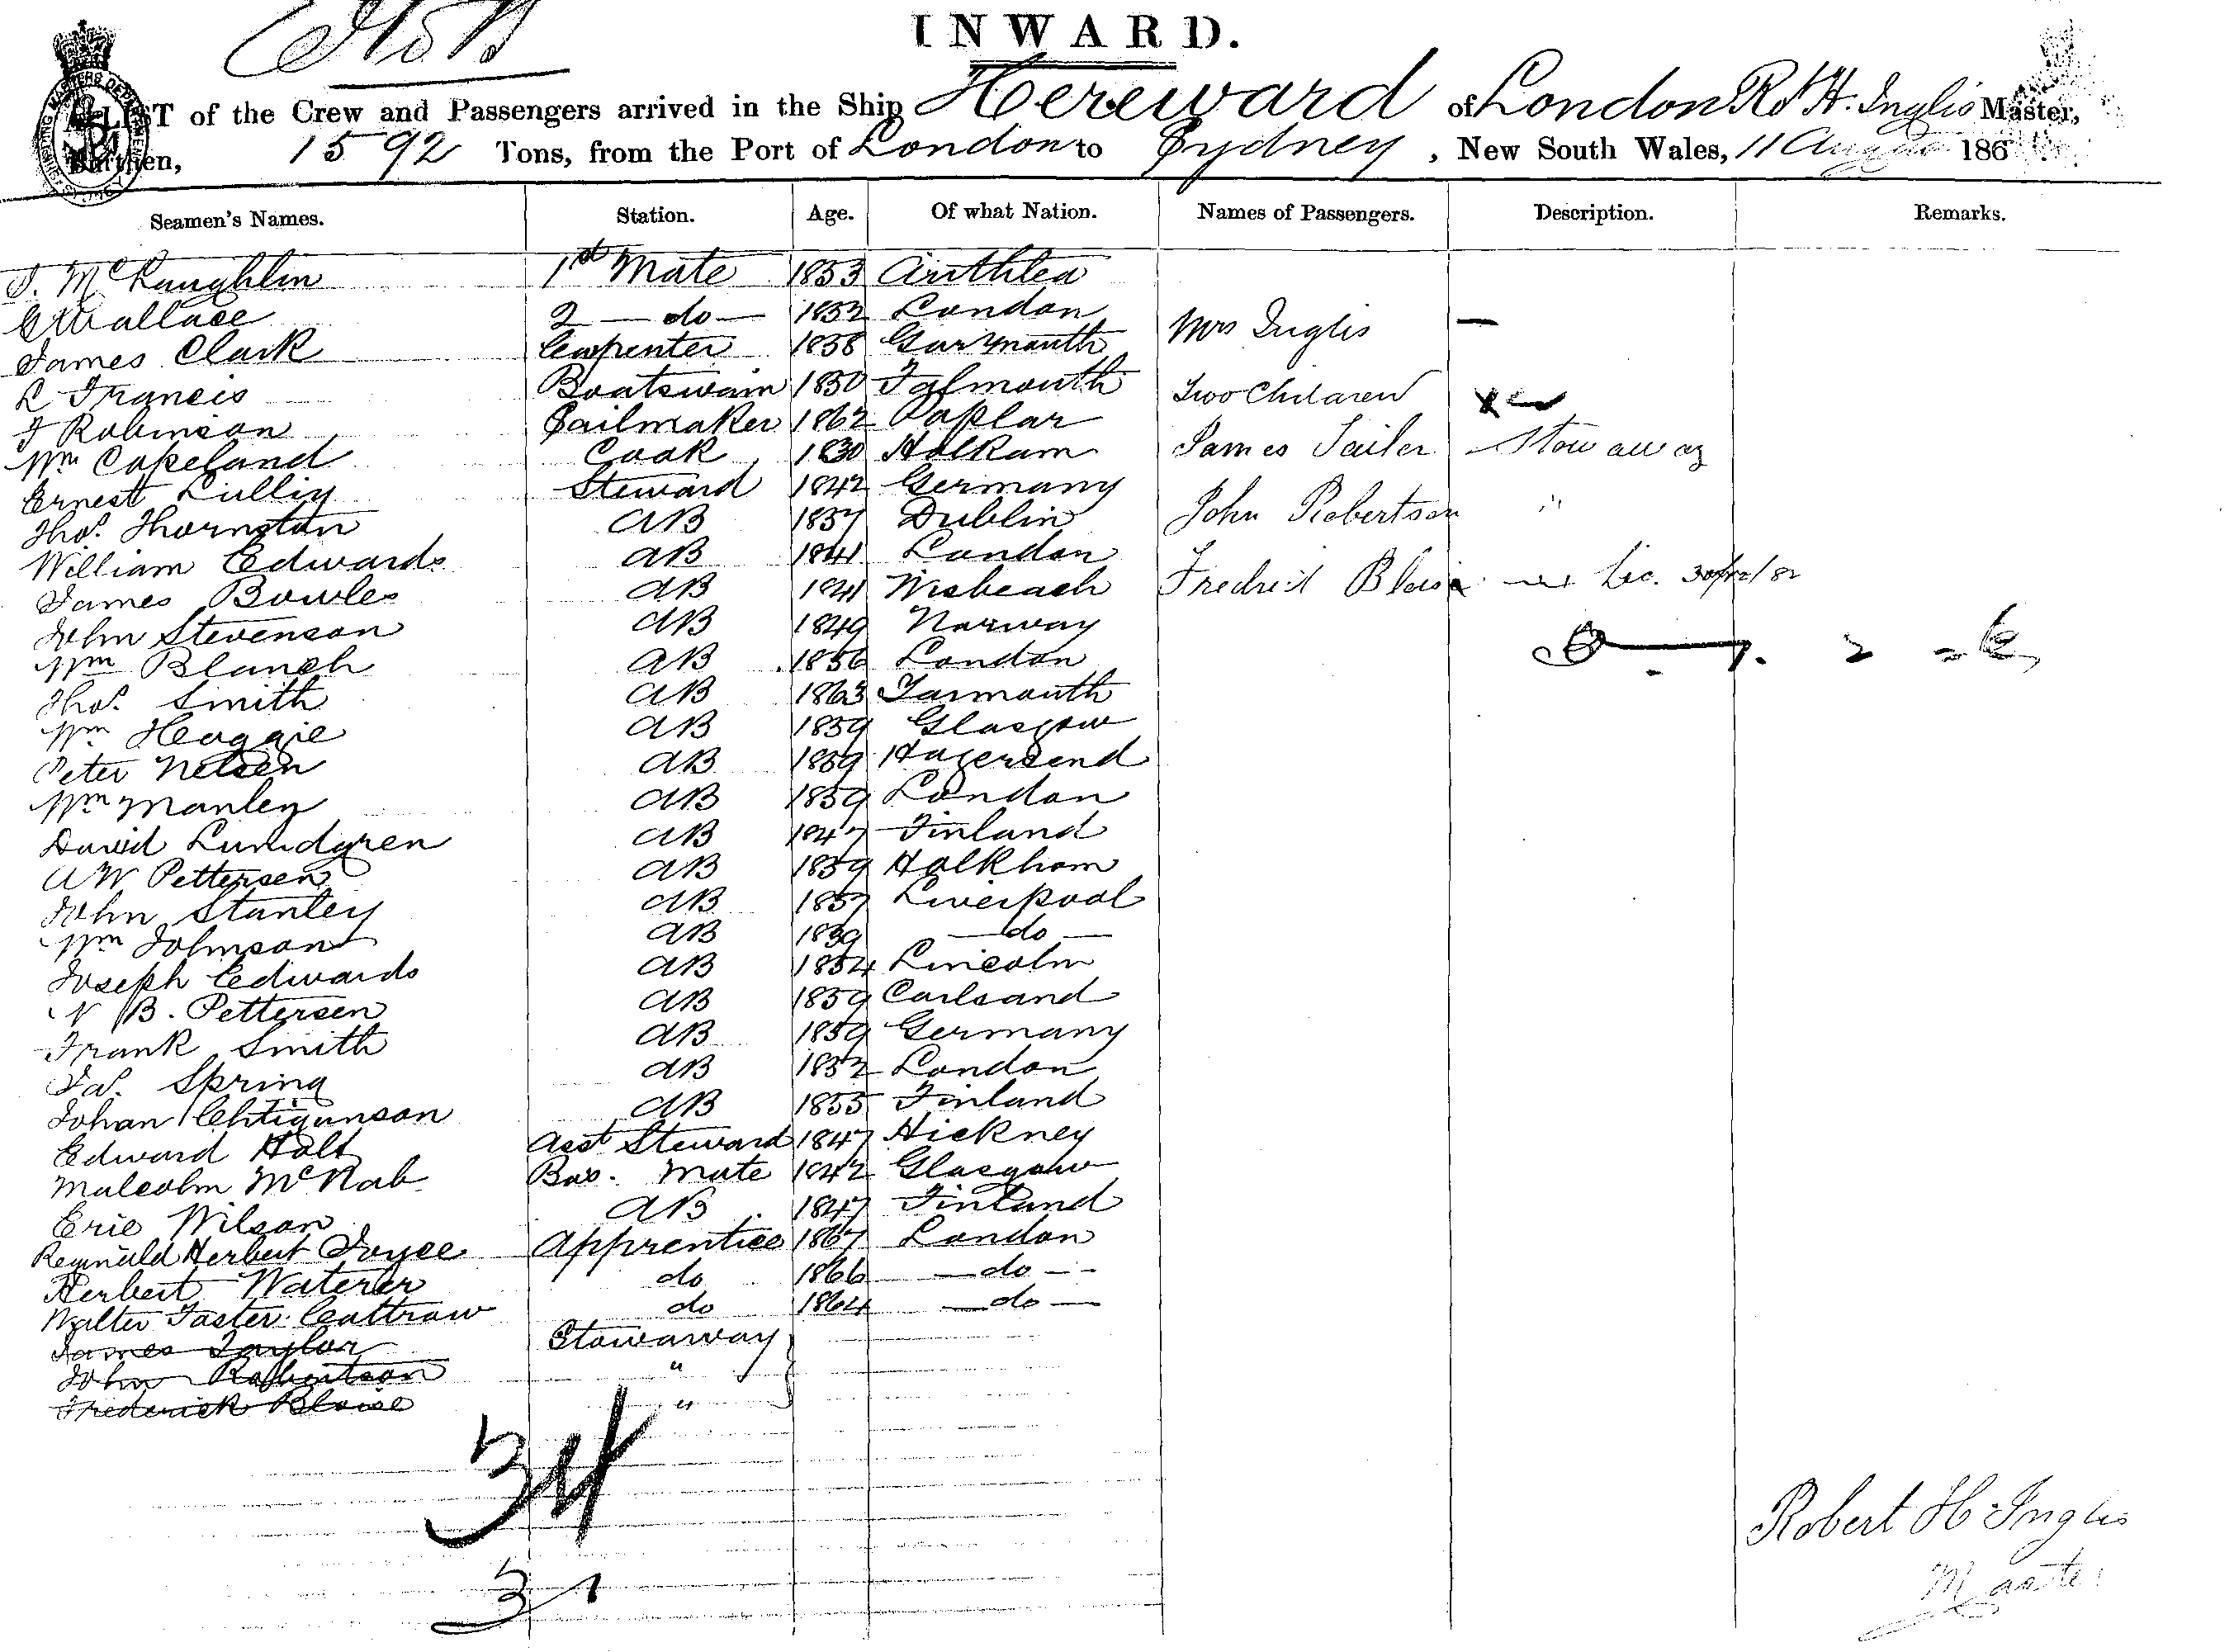 INWARD.
LIST of the Crew and Passengers arrived in the Ship Hereward of London Rt H. Inglis Master,
Burthen, 1592 Tons, from the Port of London to Sydney, New South Wales, 11 August 186
Seamen's Names. Station. Age. Of what Nation. Names of Passengers. Description. Remarks.
J. McLaughlin 1st Mate 1853
E Wallace 2 — do — 1852 London Mrs Inglis —
James Clark Carpenter 1838 Garmouth
R Francis Boatswain 1850 Falmouth Two Children
J Robinson Sailmaker 1862 Poplar
Wm Copeland Cook 1830 Holkam James Tailer Stow away
Ernest Lullig Steward 1842 Germany
Thos. Thornston AB 1857 Dublin John Robertson "
William Edwards AB 1841 London
James Bowles AB 1841 Wisbeach Fredrick Blaise
John Stevenson AB 1849 Norway
Wm Blanch AB 1856 London
Thos. Smith AB 1863 Yarmouth
Wm Heaggie AB 1859 Glasgow
Peter Nelsen AB 1859
Wm Manley AB 1859 London
David Lundgren AB 1847 Finland
AW Pettersen AB 1859 Holkham
John Stanley AB 1857 Liverpool
Wm Johnson AB 1839 — do —
Joseph Edwards AB 1854 Lincoln
N B. Pettersen AB 1859 Carlsand
Frank Smith AB 1859 Germany
Jas. Spring AB 1852 London
Johan AB 1855 Finland
Edward Holt Asst Steward 1847 Hickney
Malcolm McNab Bos. Mate 1842 Glasgow
Eric Wilson AB 1847 Finland
Reginald Herbert Joyce Apprentice 1867 London
Herbert Waterer do 1866 — do —
Walter Faster Cattraw do 1864 — do —
James Taylor Stowaway
John Robertson "
Frederick Blaise "
34
31
Robert H Inglis
Master